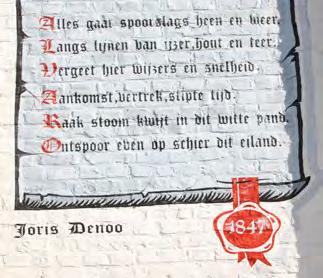 Alles gaat spoorslags heen en weer.
Langs lijnen van ijzer, hout en teer.
Vergeet hier wijzers en snelheid.
Aankomst, vertrek, stipte tijd.
Raak stoom kwijt in dit witte pand.
Ontspoor even op schier dit eiland.
Joris Denoo
1847